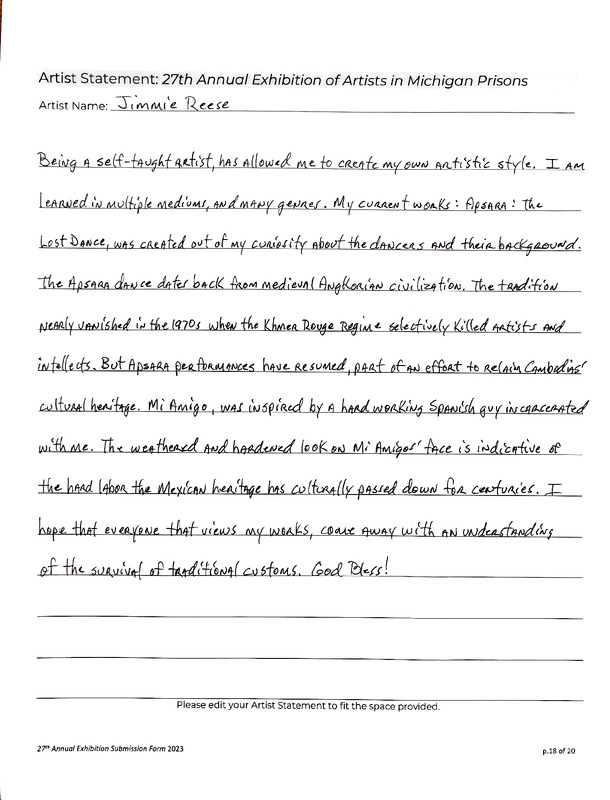 Artist Statement: 27th Annual Exhibition of Artists in Michigan Prisons
Artist Name: Jimmie Reese
Being a self-taught artist, has allowed me to create my own artistic style. I am
learned in multiple mediums, and many genres. My current works: Apsara: The
Lost Dance, was created out of my curiosity about the dancers and their background.
The Apsara dance dates back from medieval Angkorian civilization. The tradition
nearly vanished in the 1970s when the Khmer Rouge Regime selectively killed artists and
intellects. But Apsara performances have resumed, part of an effort to retain Cambodias'
cultural heritage. Mi Amigo, was inspired by a hard working Spanish guy incarcerated
with me. The weathered and hardened look on Mi Amigos' face is indicative of
the hard labor the Mexican heritage has culturally passed down for centuries. I
hope that everyone that views my works, come away with an understanding
of the survival of traditional customs. God Bless!
Please edit your Artist Statement to fit the space provided.
27th Annual Exhibition Submission Form 2023
p.18 of 20